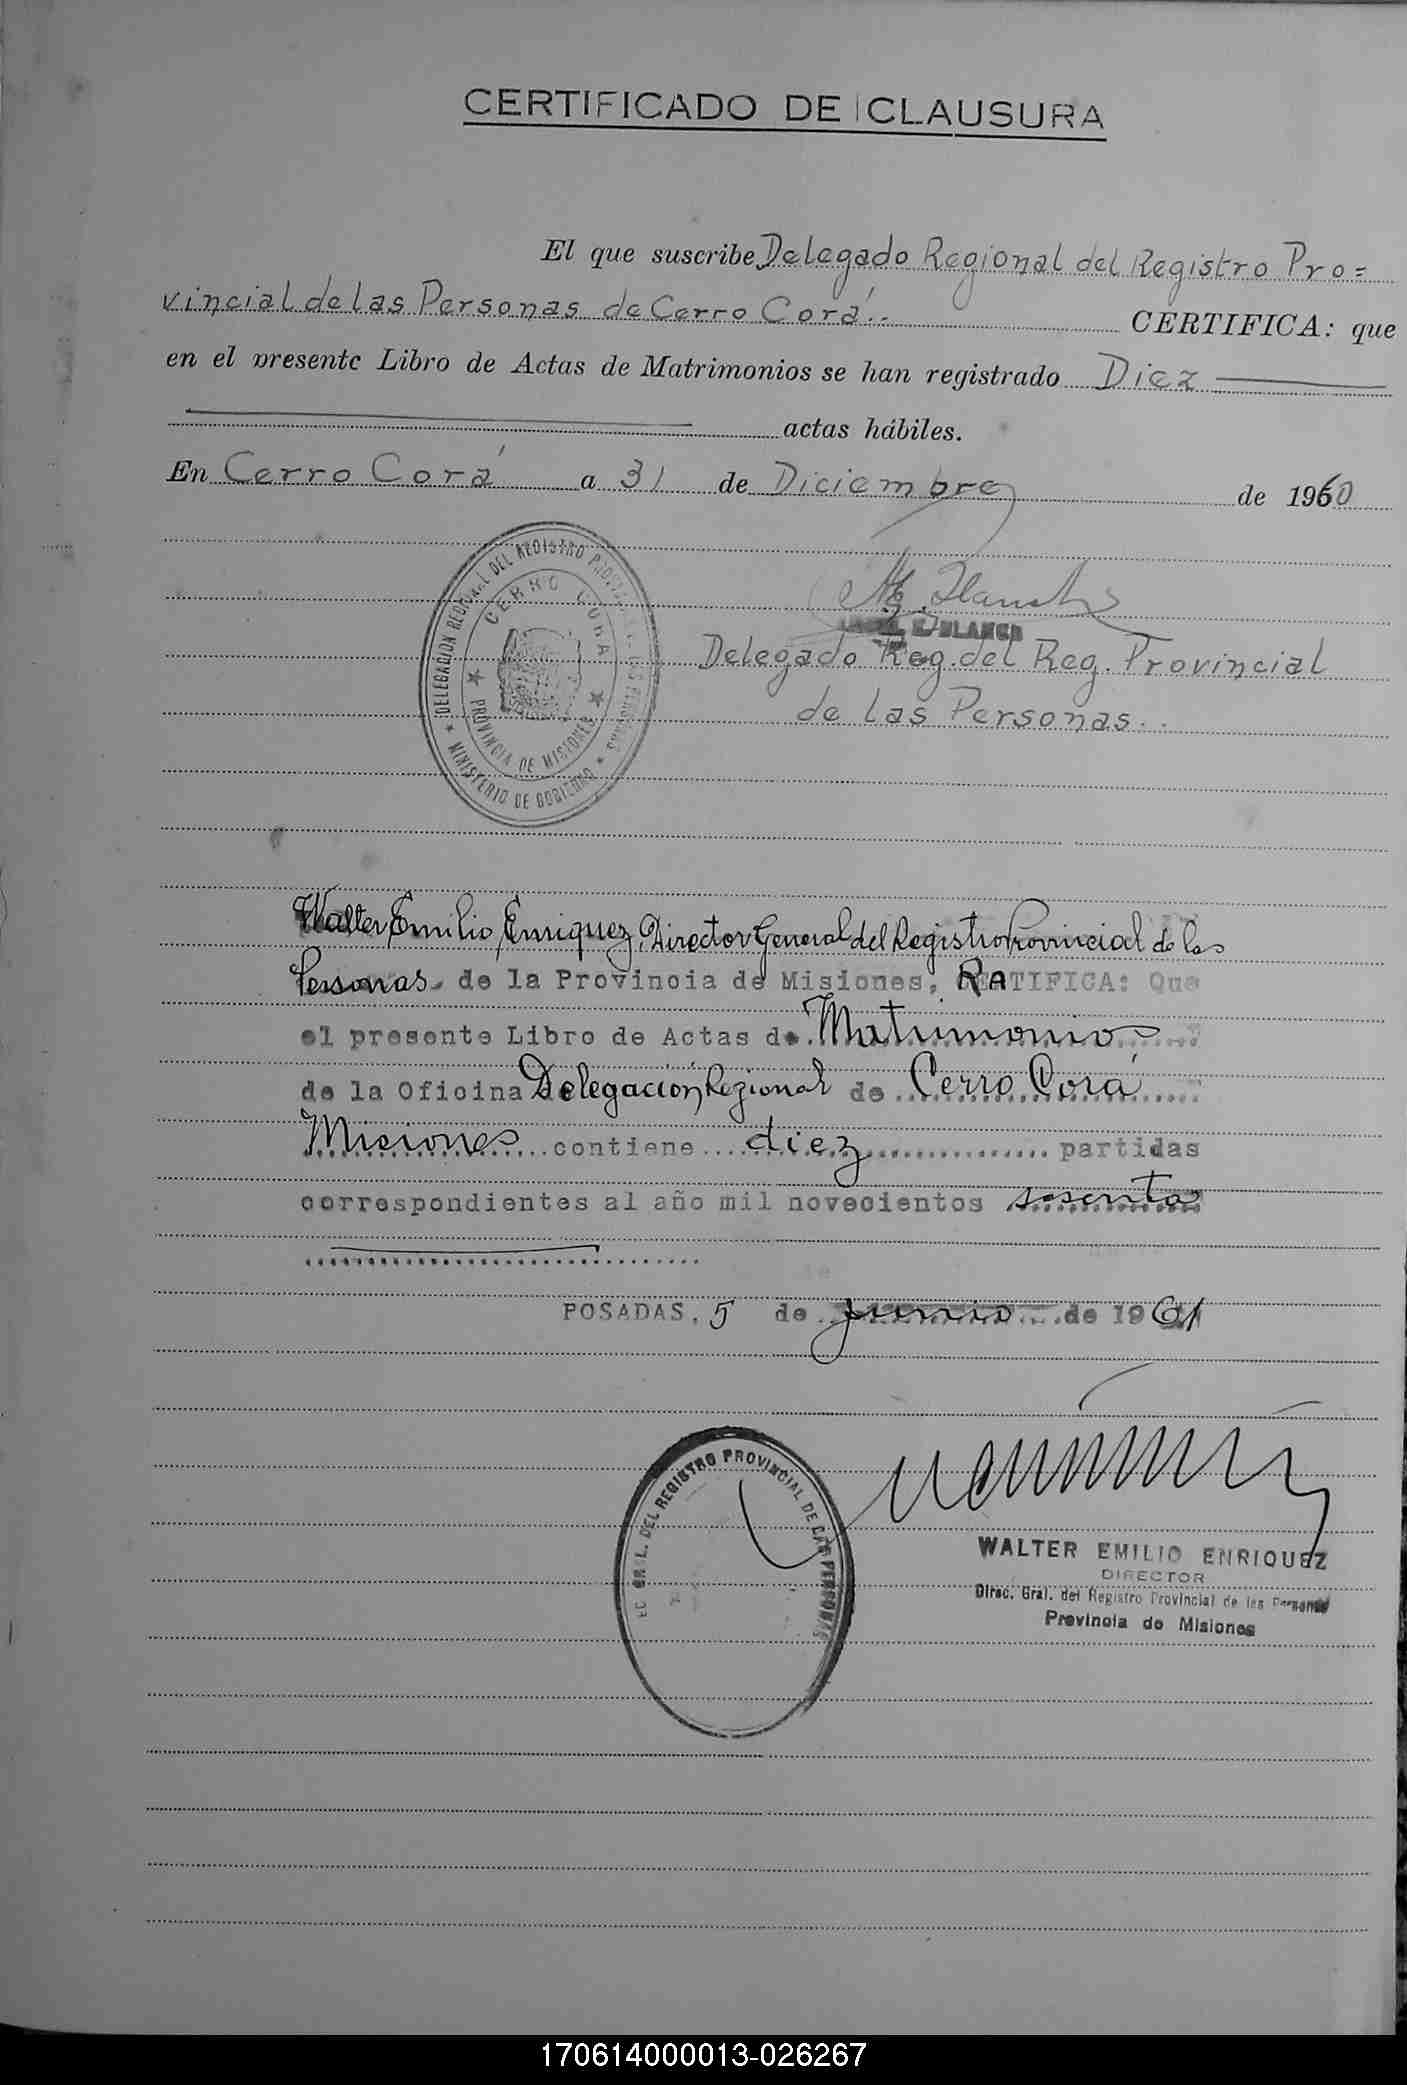 CERTIFICADO DE CLAUSURA
El que suscribe Delegado Regional del Registro Pro=
vincial de las Personas de Cerro Corá.- CERTIFICA: que
en el presente Libro de Actas de Matrimonios se han registrado Diez
actas hábiles.
En Cerro Corá a 31 de Diciembre de 1960
DELEGACION REGIONAL DEL REGISTRO PROVINCIAL DE LAS PERSONAS
CERRO CORA
PROVINCIA DE MISIONES
MINISTERIO DE GOBIERNO
E. BLANCO
Delegado Reg. del Reg. Provincial
de las Personas..
Walter Emilio Enriquez, Director General del Registro Provincial de las
Personas. de la Provincia de Misiones, RATIFICA: Que
el presente Libro de Actas de Matrimonios
de la Oficina Delegación Regional de Cerro Corá
Misiones contiene diez partidas
correspondientes al año mil novecientos sesenta
POSADAS, 5 de junio de 1961
GRAL. DEL REGISTRO PROVINCIAL DE LAS PERSONAS
WALTER EMILIO ENRIQUEZ
DIRECTOR
Direc. Gral. del Registro Provincial de las Personas
Provincia de Misiones
170614000013-026267